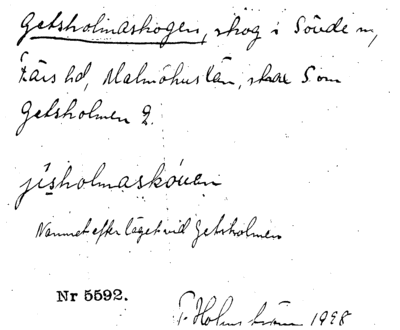 Getsholmaskogen, skog i Sövde sn,
Färs hd, Malmöhus län, skar Som
Getsholmen 2.
jísholmaskóuen
Namnet efter läget vid Getsholmen
Nr 5592.
Holmström 1928